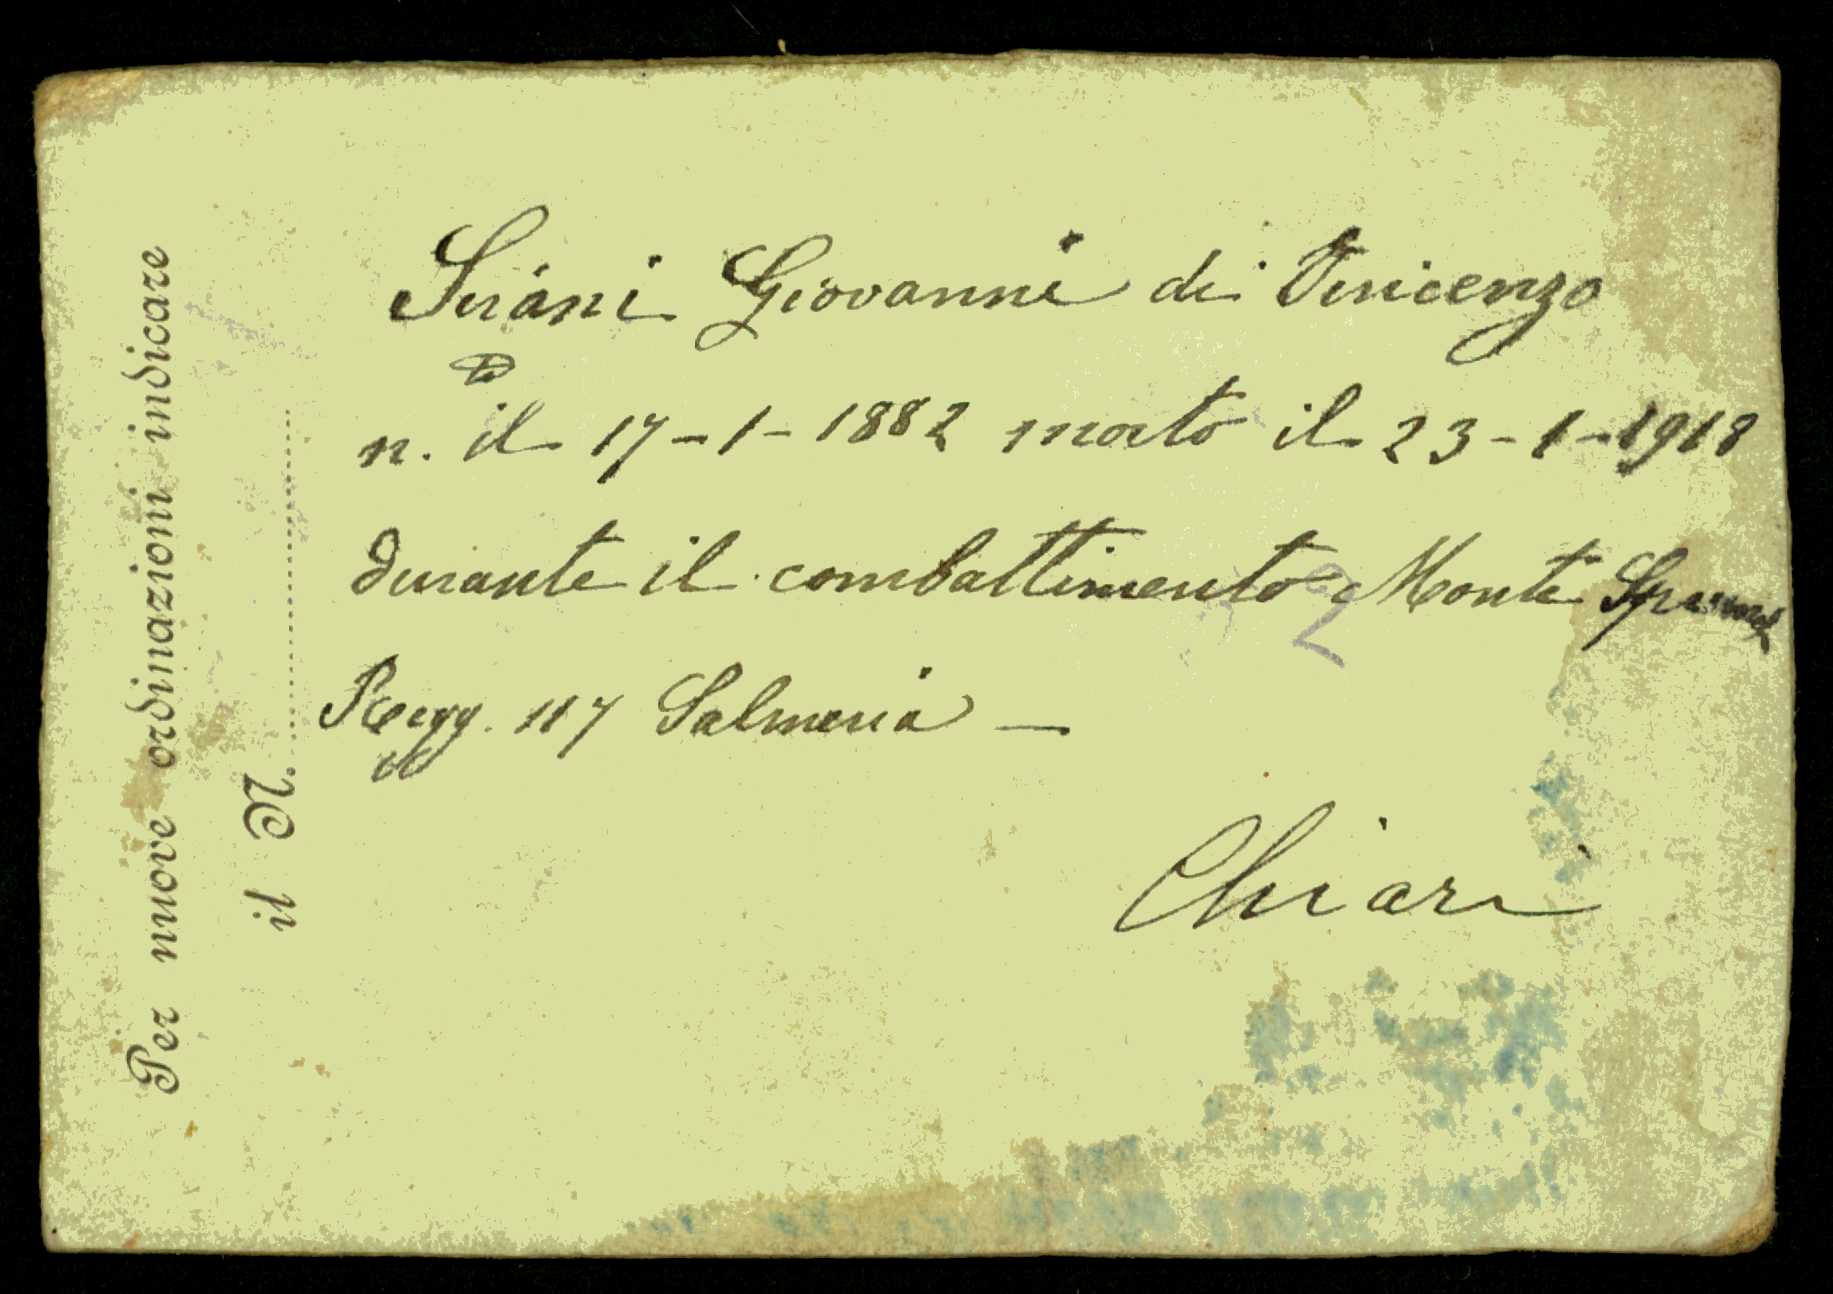 Per nuove ordinazioni indicare
il N.
Sirani Giovanni di Vincenzo
n. il 17-1-1882 morto il 23-1-1918
durante il combattimento Monte
Regg. 117 Salmeria —
Chiari
2